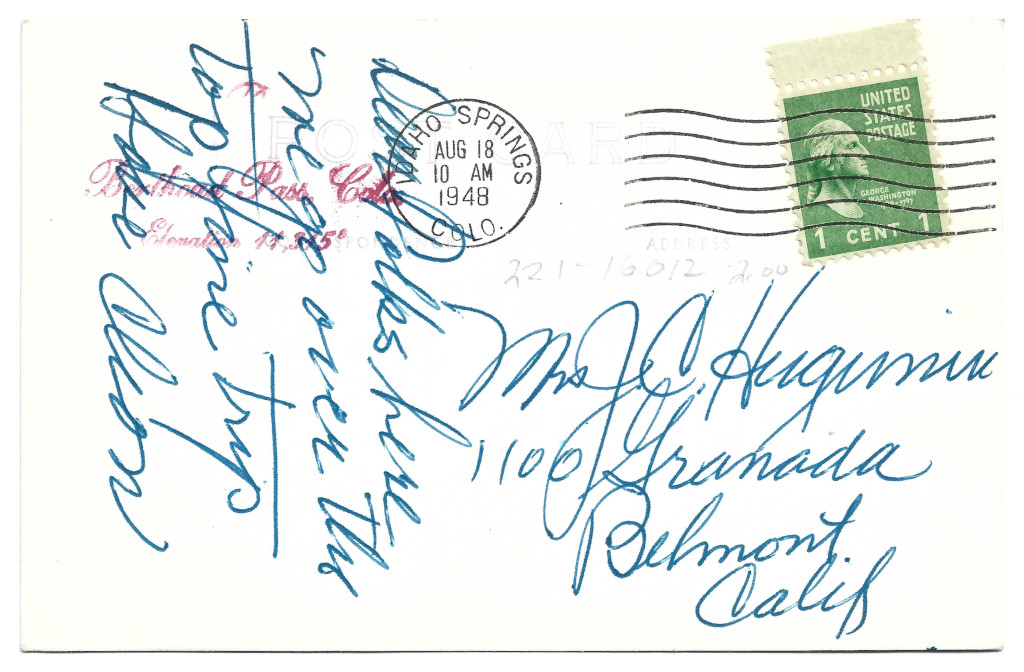 POST CARD
CORRESPONDENCE
ADDRESS
Berthoud Pass, Colo.
Elevation 11,315°
IDAHO SPRINGS
AUG 18
10 AM
1948
COLO.
UNITED
STATES
POSTAGE
GEORGE
WASHINGTON
1 CENT 1
221-16012 2.00
Dear Folks, here
we go over the
top fine trip
Love
Mrs J. C. Huguenin
1100 Granada
Belmont
Calif